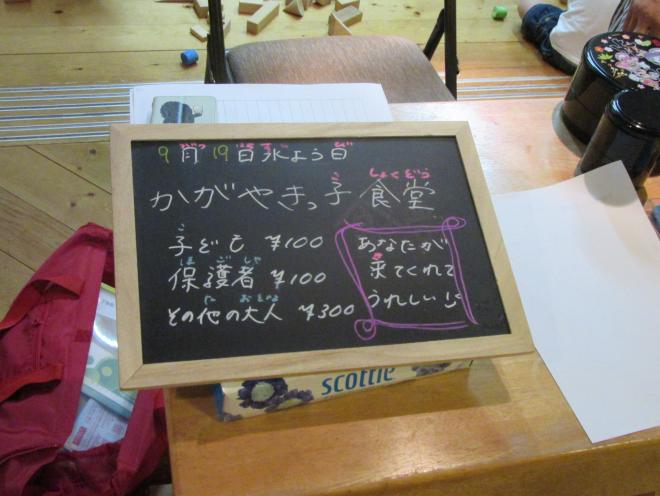 9月19日水よう日
かがやきっ子食堂
しょくどう
子ども ¥100
保護者 ¥100
ほごしゃ
その他の大人 ¥300
た おとな
あなたが
来てくれて
うれしい
scottie